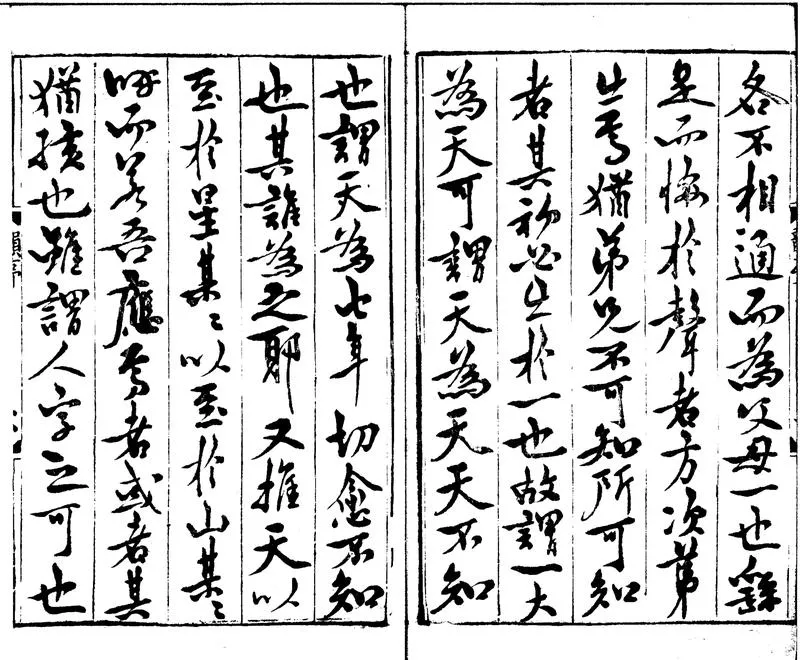 名不相通而為父母一也繇
是而悔於聲者方次第
出焉猶弟兄不可知所可知
者其初必出於一也故謂一大
為天可謂天為天天不知
也謂天為七年切愈不知
也其誰為之耶又推天以
至於星某〻以至於山某〻
呼而若吾應焉者或者其
猶孩也雖謂人字之可也
韻亭